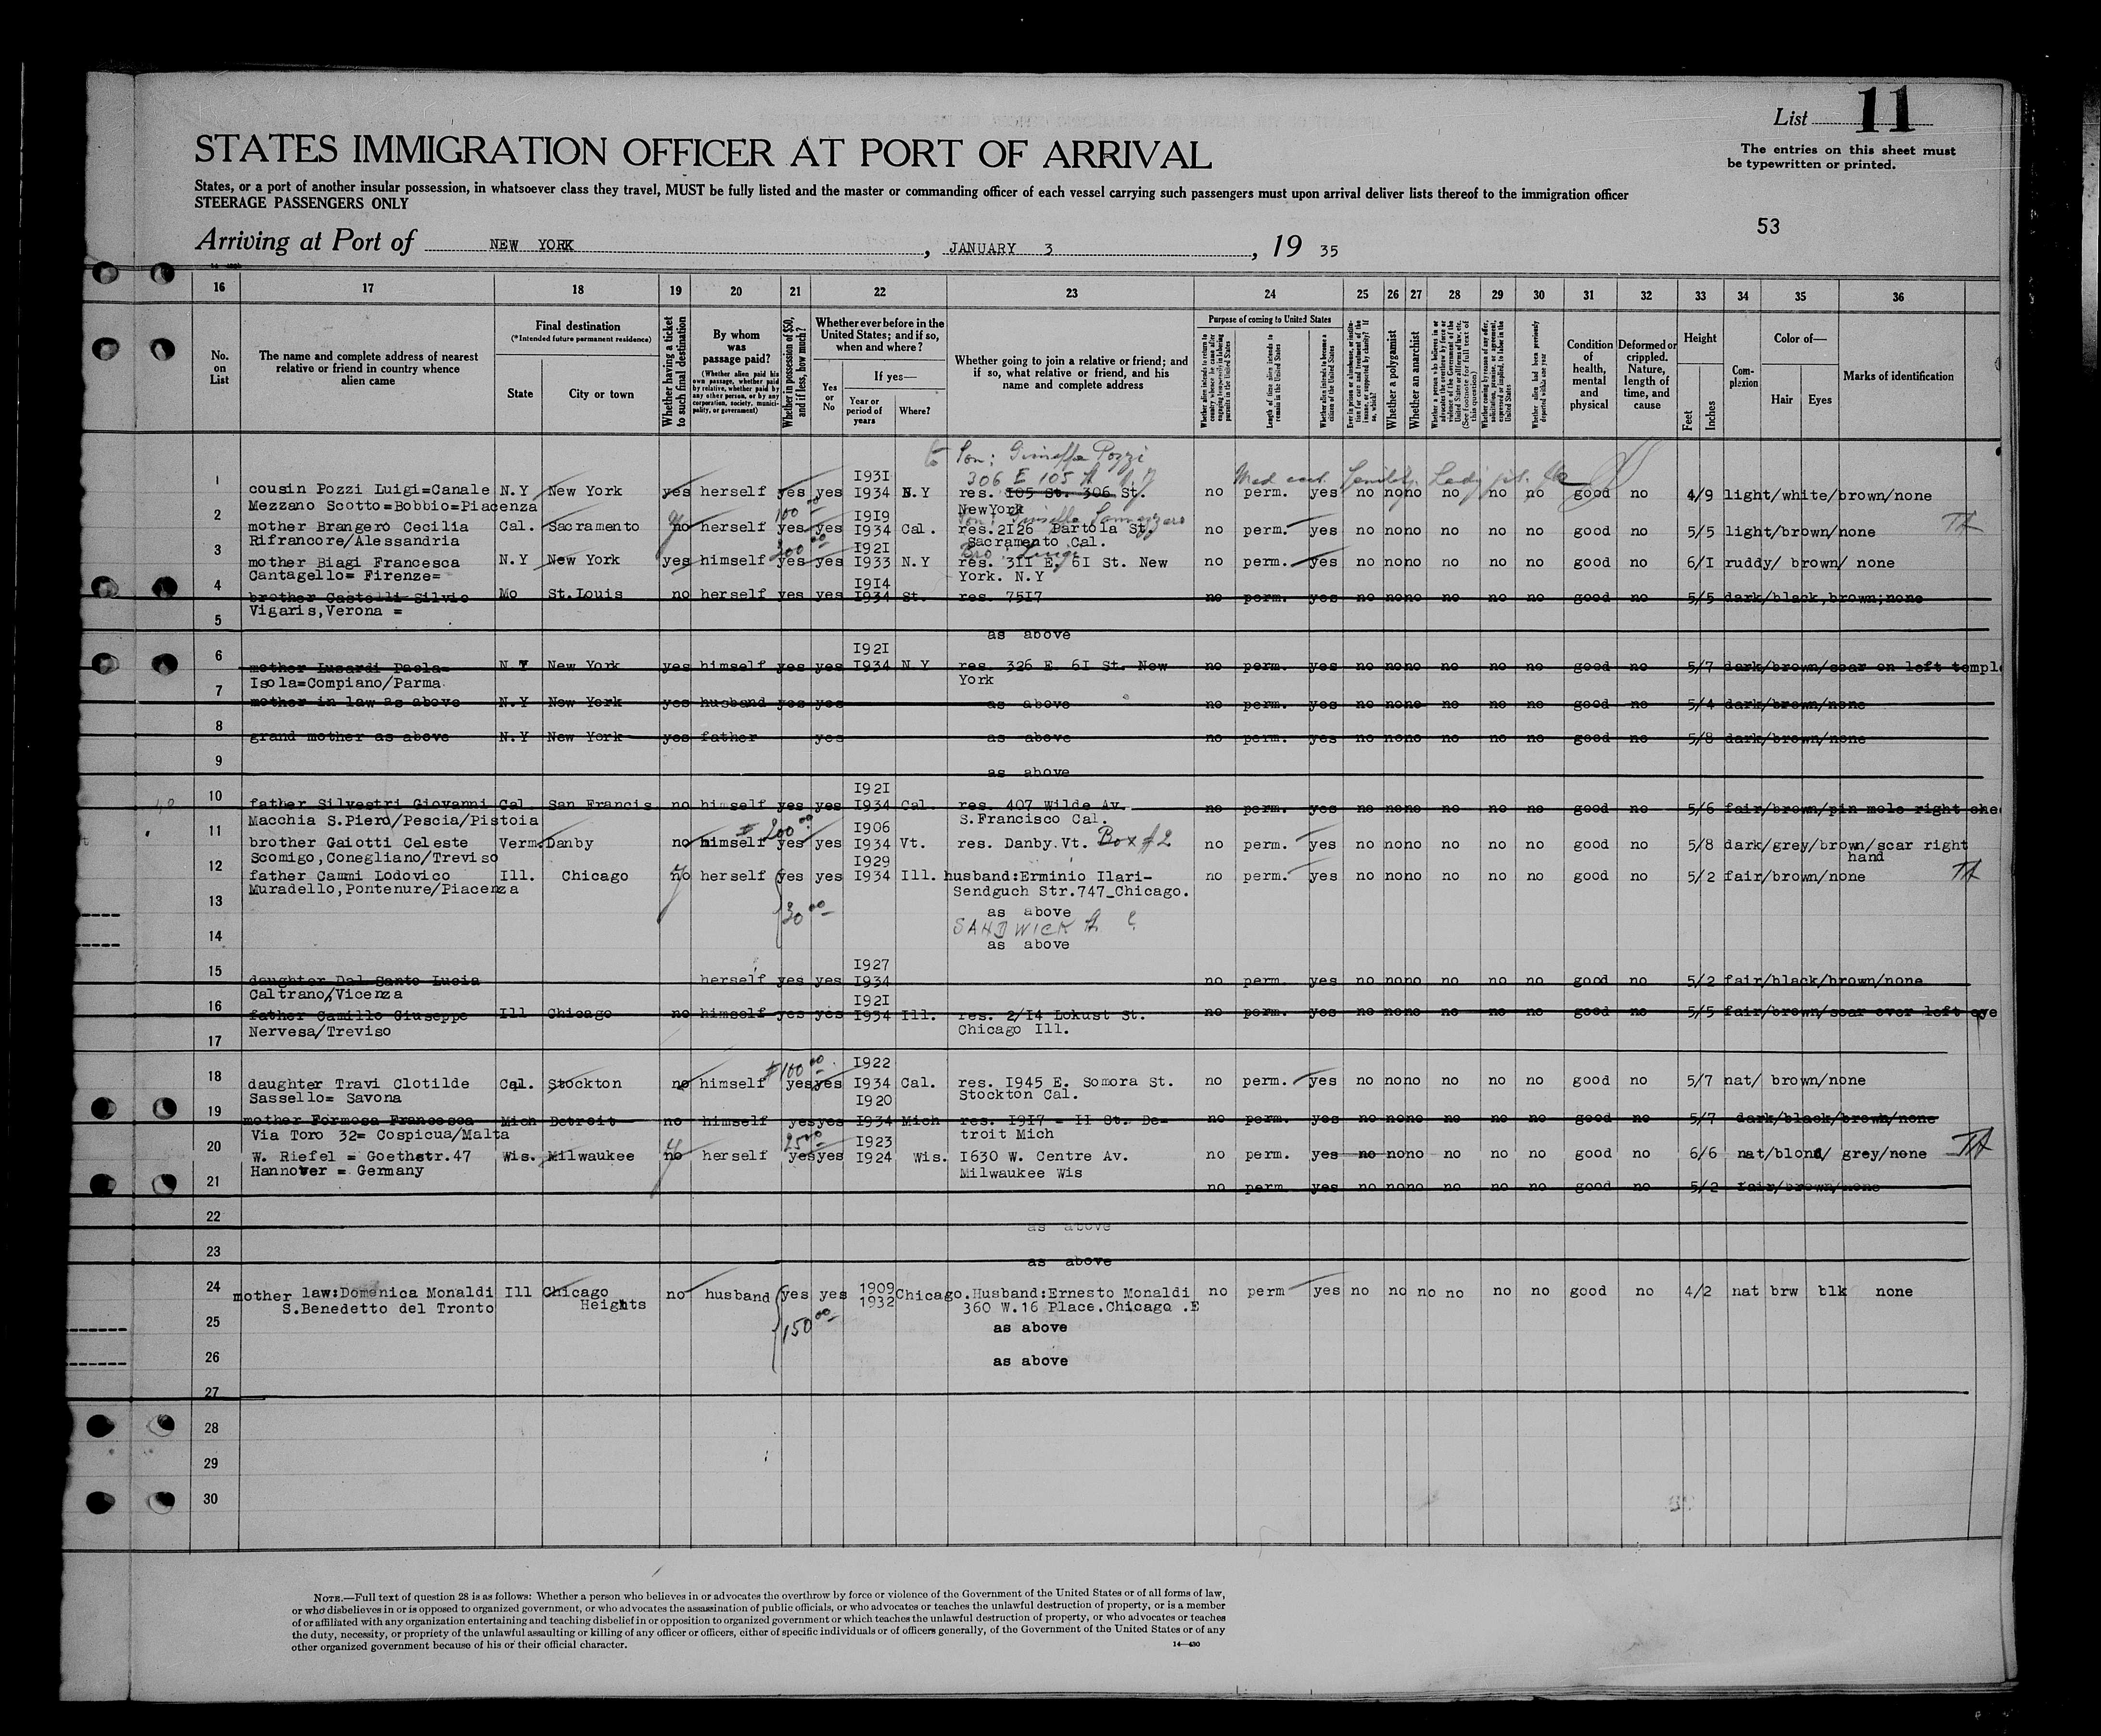 List 11
STATES IMMIGRATION OFFICER AT PORT OF ARRIVAL
The entries on this sheet must
be typewritten or printed.
States, or a port of another insular possession, in whatsoever class they travel, MUST be fully listed and the master or commanding officer of each vessel carrying such passengers must upon arrival deliver lists thereof to the immigration officer
STEERAGE PASSENGERS ONLY
53
Arriving at Port of NEW YORK, JANUARY 3, 19 35
16 17 18 19 20 21 22 23 24 25 26 27 28 29 30 31 32 33 34 35 36
No. on List
The name and complete address of nearest relative or friend in country whence alien came
Final destination
(*Intended future permanent residence)
State
City or town
Whether having a ticket to such final destination
By whom was passage paid?
(Whether alien paid his own passage, whether paid by relative, whether paid by any other person, or by any corporation, society, municipality, or government)
Whether in possession of $50, and if less, how much?
Whether ever before in the United States; and if so, when and where?
Yes or No
If yes—
Year or period of years
Where?
Whether going to join a relative or friend; and if so, what relative or friend, and his name and complete address
Purpose of coming to United States
Length of time alien intends to remain in the United States
Whether alien intends to become a citizen of the United States
Whether a polygamist
Whether an anarchist
Condition of health, mental and physical
Deformed or crippled. Nature, length of time, and cause
Height
Feet
Inches
Complexion
Color of—
Hair
Eyes
Marks of identification
to Son: Pozzi
306 E 105 St N.Y
1 I93I
cousin Pozzi Luigi=Canale N.Y New York yes herself yes yes I934 N.Y res. I05 St. 306 St. no perm. yes no no no no no no good no 4/9 light/white/brown/none
Mezzano Scotto=Bobbio=Piacenza 100 00 NewYork
2 I9I9
mother Brangero Cecilia Cal. Sacramento no herself yes yes I934 Cal. res.2I26 Partola St. no perm. yes no no no no no no good no 5/5 light/brown/none
Rifrancore/Alessandria Sacramento Cal.
3 200 00 I92I Bro: Luigi
mother Biagi Francesca N.Y New York yes himself yes yes I933 N.Y res. 3II E. 6I St. New no perm. yes no no no no no no good no 6/I ruddy/ brown/ none
Cantagello= Firenze= York. N.Y
4 I9I4
brother Castelli Silvio Mo St.Louis no herself yes yes I934 St. res. 75I7 no perm. yes no no no no no no good no 5/5 dark/black,brown;none
Vigaris,Verona =
5 as above
6 I92I
mother Lusardi Paola= N.Y New York yes himself yes yes I934 N.Y res. 326 E. 6I St. New no perm. yes no no no no no no good no 5/7 dark/brown/scar on left temple
Isola=Compiano/Parma York
7 mother in law as above N.Y New York yes husband yes yes as above no perm. yes no no no no no no good no 5/4 dark/brown/none
8 grand mother as above N.Y New York yes father yes as above no perm. yes no no no no no no good no 5/8 dark/brown/none
9 as above
10 I92I
father Silvestri Giovanni Cal. San Francis no himself yes yes I934 Cal. res. 407 Wilde Av. no perm. yes no no no no no no good no 5/6 fair/brown/pin mole right chee
Macchia S.Piero/Pescia/Pistoia S.Francisco Cal.
11 $ 200 00 I906
brother Gaiotti Celeste Verm. Danby no himself yes yes I934 Vt. res. Danby.Vt. Box #2 no perm. yes no no no no no no good no 5/8 dark/grey/brown/scar right
Scomigo,Conegliano/Treviso hand
12 I929
father Cammi Lodovico Ill. Chicago no herself yes yes I934 Ill. husband:Erminio Ilari- no perm. yes no no no no no no good no 5/2 fair/brown/none
Muradello,Pontenure/Piacenza Sendguch Str.747_Chicago.
13 30 00 as above
SANDWICK
14 as above
15 I927
daughter Dal Santo Lucia herself yes yes I934 no perm. yes no no no no no no good no 5/2 fair/black/brown/none
Caltrano/Vicenza
16 I92I
father Camillo Giuseppe Ill Chicago no himself yes yes I934 Ill. res. 2/I4 Lokust St. no perm. yes no no no no no no good no 5/5 fair/brown/scar over left eye
Nervesa/Treviso Chicago Ill.
17
18 $100 00 I922
daughter Travi Clotilde Cal. Stockton no himself yes yes I934 Cal. res. I945 E. Somora St. no perm. yes no no no no no no good no 5/7 nat/ brown/none
Sassello= Savona Stockton Cal.
19 I920
mother Formosa Francesca Mich Detroit no himself yes yes I934 Mich res. I9I7 = II St. De= no perm. yes no no no no no no good no 5/7 dark/black/brown/none
Via Toro 32= Cospicua/Malta troit Mich
20 25 00 I923
W. Riefel = Goethstr.47 Wis. Milwaukee no herself yes yes I924 Wis. I630 W. Centre Av. no perm. yes no no no no no no good no 6/6 nat/blond/ grey/none
Hannover = Germany Milwaukee Wis
21 no perm yes no no no no no no good no 5/2 fair/brown/none
22 as above
23 as above
24 mother law:Domenica Monaldi Ill Chicago no husband yes yes 1909 Chicago.Husband:Ernesto Monaldi no perm yes no no no no no no good no 4/2 nat brw blk none
S.Benedetto del Tronto Heights 1932 360 W.16 Place.Chicago .E
25 150 00 as above
26 as above
27
28
29
30
NOTE.—Full text of question 28 is as follows: Whether a person who believes in or advocates the overthrow by force or violence of the Government of the United States or of all forms of law,
or who disbelieves in or is opposed to organized government, or who advocates the assassination of public officials, or who advocates or teaches the unlawful destruction of property, or is a member
of or affiliated with any organization entertaining and teaching disbelief in or opposition to organized government or which teaches the unlawful destruction of property, or who advocates or teaches
the duty, necessity, or propriety of the unlawful assaulting or killing of any officer or officers, either of specific individuals or of officers generally, of the Government of the United States or of any
other organized government because of his or their official character.
14—430